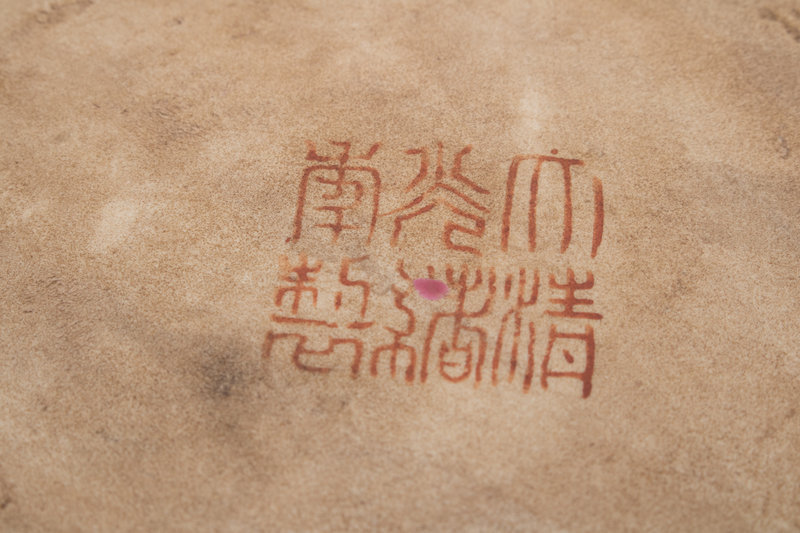 大清
光緒
年製